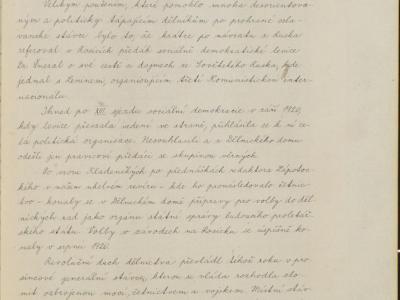 Velikým poučením, které pomohlo mnoha desorientova-
ným a politicky tápajícím dělníkům po prohrané osla-
vanské stávce bylo to, že krátce po návratu z Ruska
referoval v Rosicích předák sociálně demokratické levice
Dr Šmeral o své cestě a dojmech ze Sovětského Ruska, kde
jednal s Leninem, organisujícím třetí Komunistickou inter-
nacionálu.
Ihned po XIII. sjezdu sociální demokracie v září 1920,
kdy levice převzala vedení ve straně, přihlásila se k ní ce-
lá politická organisace. Nesouhlasili a z Dělnického domu
odešli jen pravicoví předáci se skupinou věrných.
Po vzoru Kladenských po přednáškách redaktora Zápotoc-
kého v našem uhelném revíru - kde ho pronásledovalo četnic-
tvo - konaly se v Dělnickém domě přípravy pro volby do děl-
nických rad jako orgánu státní správy budoucího proletář-
ského státu. Volby v závodech na Rosicku se úspěšně ko-
naly v srpnu 1920.
Revoluční duch dělnictva převládl téhož roku v pro-
sincové generální stávce, kterou se vláda rozhodla zlo-
mit ozbrojenou mocí, četnictvem a vojskem. Místní stáv-